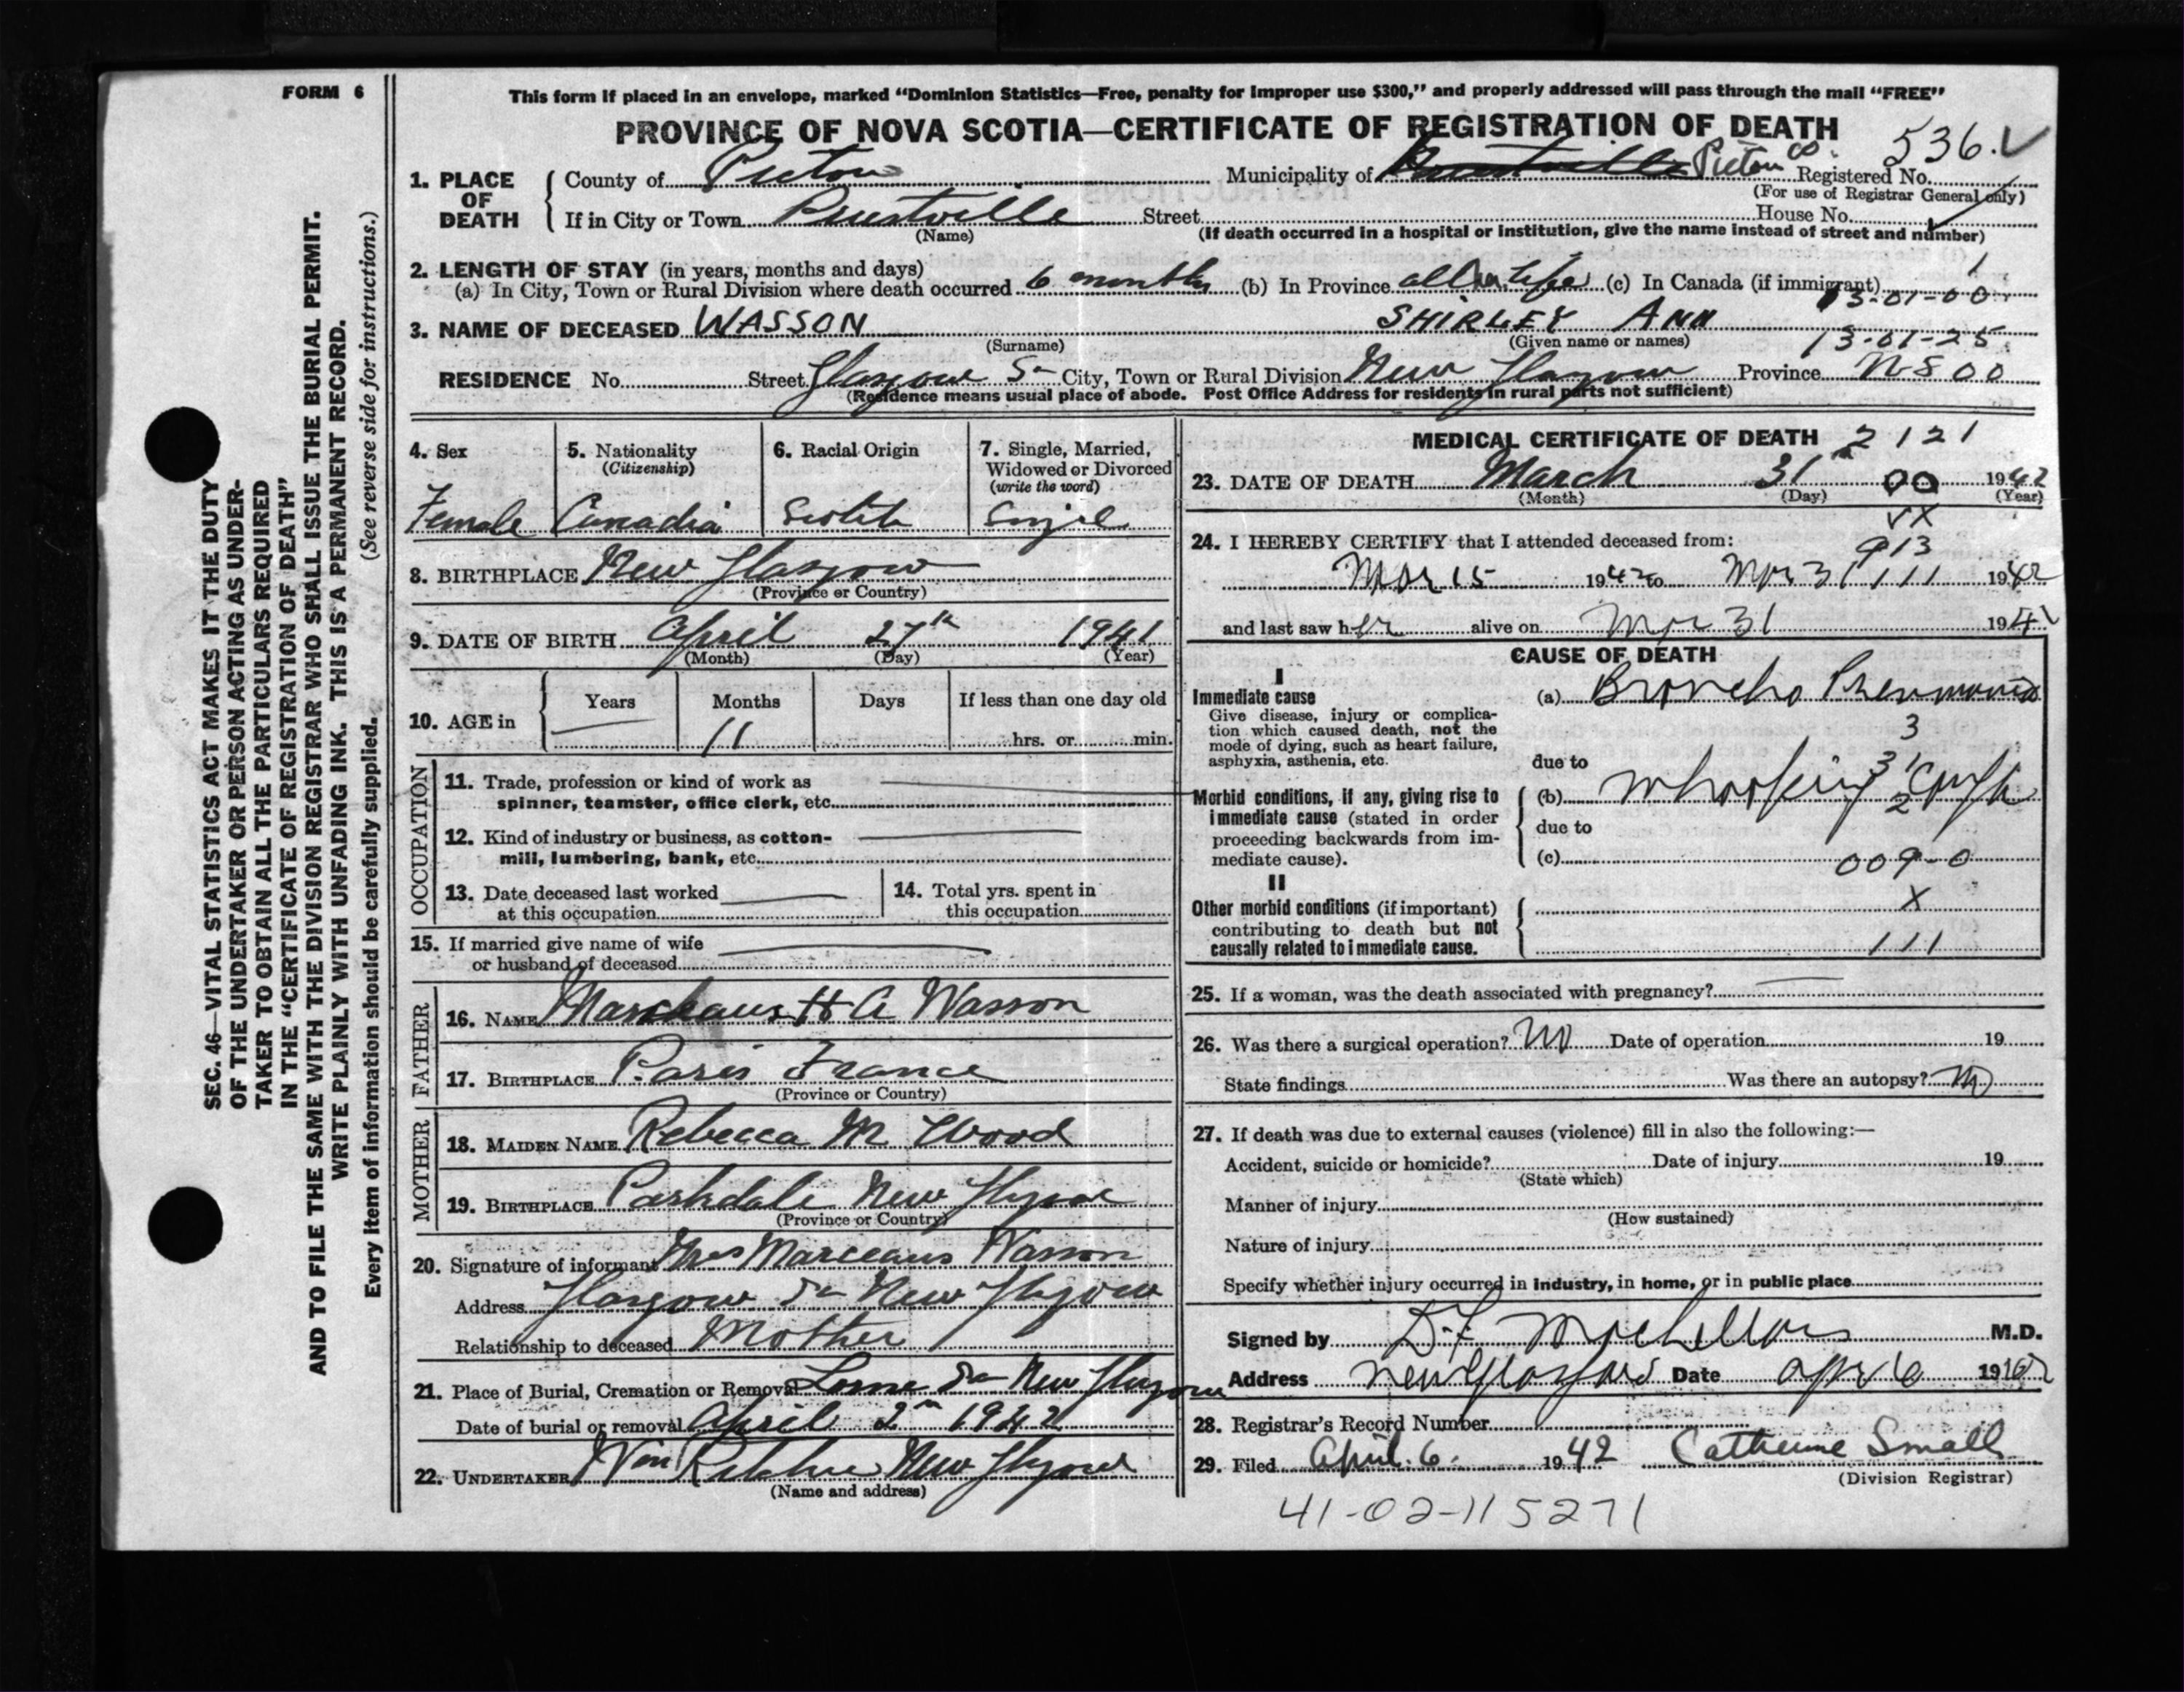 FORM 6
This form if placed in an envelope, marked “Dominion Statistics—Free, penalty for improper use $300,” and properly addressed will pass through the mail “FREE”
PROVINCE OF NOVA SCOTIA—CERTIFICATE OF REGISTRATION OF DEATH
536.
1. PLACE OF DEATH
County of Pictou Municipality of Pictou Co. Registered No.
(For use of Registrar General only)
If in City or Town Street House No.
(Name) (If death occurred in a hospital or institution, give the name instead of street and number)
2. LENGTH OF STAY (in years, months and days)
(a) In City, Town or Rural Division where death occurred 6 months (b) In Province all her life (c) In Canada (if immigrant)
13-01-00
3. NAME OF DECEASED WASSON SHIRLEY ANN
(Surname) (Given name or names)
13-01-25
RESIDENCE No. Street Glasgow St City, Town or Rural Division New Glasgow Province N S 00
(Residence means usual place of abode. Post Office Address for residents in rural parts not sufficient)
4. Sex 5. Nationality (Citizenship) 6. Racial Origin 7. Single, Married, Widowed or Divorced (write the word)
Female Canadia
8. BIRTHPLACE New Glasgow
(Province or Country)
9. DATE OF BIRTH April 27th 1941
(Month) (Day) (Year)
10. AGE in Years Months Days If less than one day old
11 hrs. or min.
OCCUPATION
11. Trade, profession or kind of work as spinner, teamster, office clerk, etc.
12. Kind of industry or business, as cotton-mill, lumbering, bank, etc.
13. Date deceased last worked at this occupation
14. Total yrs. spent in this occupation
15. If married give name of wife or husband of deceased
FATHER
16. NAME H A Wasson
17. BIRTHPLACE Paris France
(Province or Country)
MOTHER
18. MAIDEN NAME Rebecca M Wood
19. BIRTHPLACE Parkdale New Glasgow
(Province or Country)
20. Signature of informant Mrs Marceaus Wasson
Address Glasgow St New Glasgow
Relationship to deceased Mother
21. Place of Burial, Cremation or Removal Lorne St New Glasgow
Date of burial or removal April 2 1942
22. UNDERTAKER Wm Ritchie New Glasgow
(Name and address)
MEDICAL CERTIFICATE OF DEATH 2121
23. DATE OF DEATH March 31 00 1942
(Month) (Day) (Year)
VX
24. I HEREBY CERTIFY that I attended deceased from:
913
Mar 15 1942 to Mar 31 111 1942
and last saw her alive on Mar 31 194
CAUSE OF DEATH
I
Immediate cause (a) Broncho Pneumonia
Give disease, injury or complica-
tion which caused death, not the
mode of dying, such as heart failure,
asphyxia, asthenia, etc.
3
due to
31
Morbid conditions, if any, giving rise to (b) Whooping Cough
2
immediate cause (stated in order due to
proceeding backwards from im-
mediate cause). (c) 009-0
II X
Other morbid conditions (if important)
contributing to death but not
causally related to immediate cause. 111
25. If a woman, was the death associated with pregnancy?
26. Was there a surgical operation? No Date of operation 19
State findings Was there an autopsy? No
27. If death was due to external causes (violence) fill in also the following:—
Accident, suicide or homicide? Date of injury 19
(State which)
Manner of injury
(How sustained)
Nature of injury
Specify whether injury occurred in industry, in home, or in public place
Signed by M.D.
Address New Glasgow Date Apr 6 19
28. Registrar's Record Number
29. Filed April 6. 1942 Catherine Small
(Division Registrar)
41-02-115271
SEC. 46—VITAL STATISTICS ACT MAKES IT THE DUTY
OF THE UNDERTAKER OR PERSON ACTING AS UNDER-
TAKER TO OBTAIN ALL THE PARTICULARS REQUIRED
IN THE “CERTIFICATE OF REGISTRATION OF DEATH”
AND TO FILE THE SAME WITH THE DIVISION REGISTRAR WHO SHALL ISSUE THE BURIAL PERMIT.
WRITE PLAINLY WITH UNFADING INK. THIS IS A PERMANENT RECORD.
Every item of information should be carefully supplied. (See reverse side for instructions.)